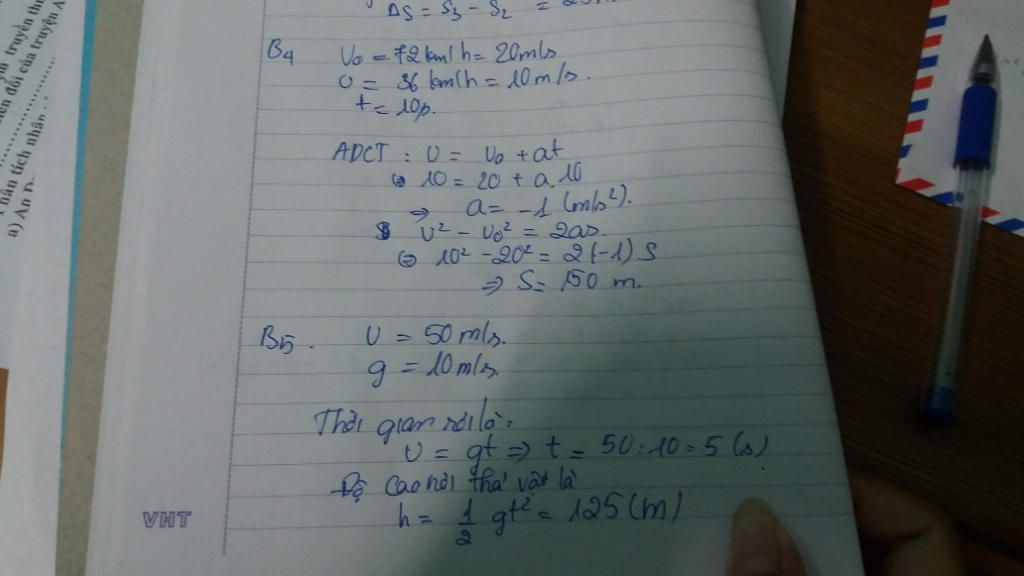 ΔS = S3 - S2 =
B4 v0 = 72 km/h = 20m/s
v = 36 km/h = 10m/s.
t = 10p.
ADCT : v = v0 + at
⇔ 10 = 20 + a.10
⇒ a = -1 (m/s²).
v² - v0² = 2as.
⇔ 10² - 20² = 2(-1) S
⇒ S = 150 m.
B5. v = 50 m/s.
g = 10m/s
Thời gian rơi là:
v = gt ⇒ t = 50 : 10 = 5 (s)
Độ cao nơi thả vật là
h = 1/2 gt² = 125 (m)
VHT
truyện
đổi của truyện A
Phân tích nhân
a) An